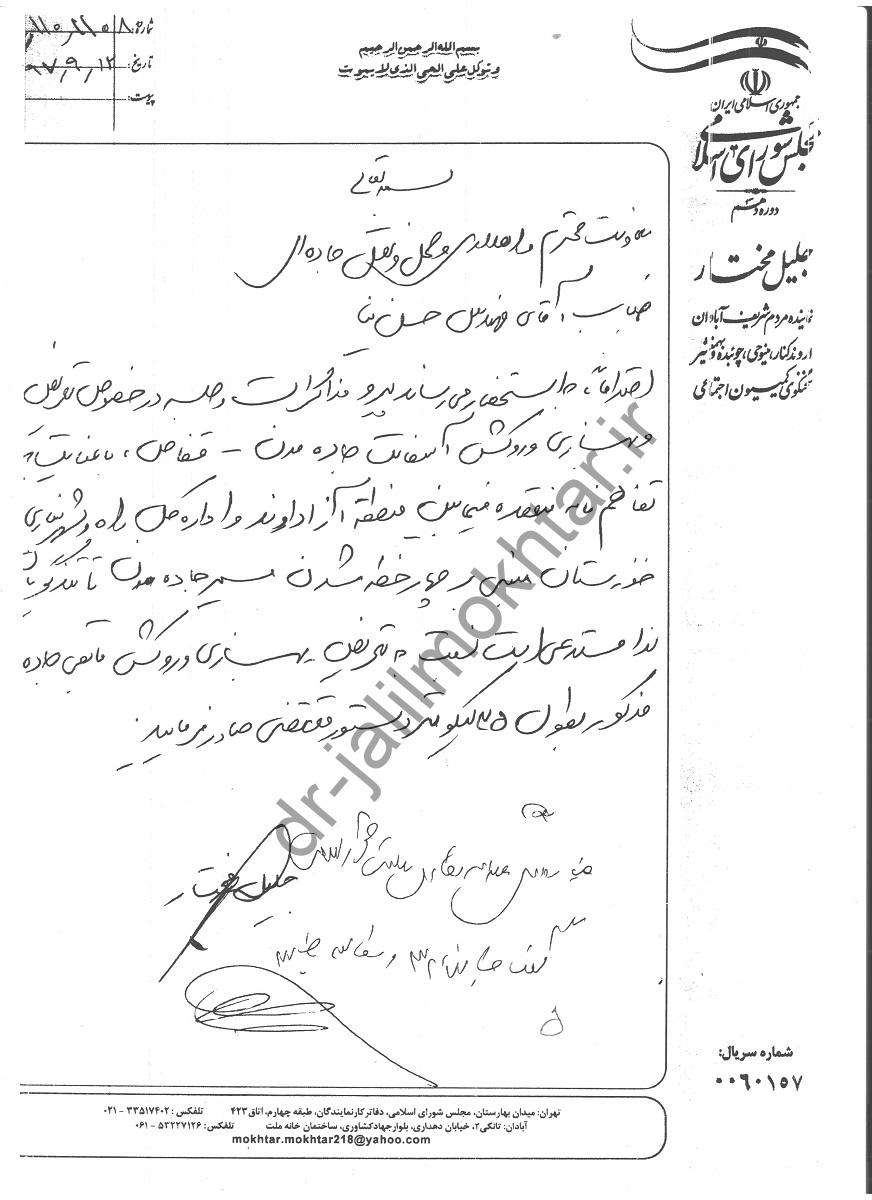 بسم الله الرحمن الرحیم
و توکل علی الحی الذی لا یموت
شماره:
تاریخ: ۹۷٫۹٫۱۲
پیوست:
جمهوری اسلامی ایران
مجلس شورای اسلامی
دوره دهم
جلیل مختار
نماینده مردم شریف آبادان
اروندکنار، مینوحی، چوئبده و بهمنشیر
سخنگوی کمیسیون اجتماعی
بسمه تعالی
معاونت محترم راهداری و حمل و نقل جاده ای
جناب آقای مهندس حسن نیا
احتراماً، به استحضار می رساند پیرو مذاکرات و جلسه در خصوص تعریض
و بهسازی و روکش آسفالت جاده مدن - قفاص، با عنایت به
تفاهم نامه منعقده فیمابین منطقه آزاد اروند و اداره کل راه و شهرسازی
خوزستان مبنی بر چهار خطه شدن مسیر جاده مدن تا
لذا مستدعی است نسبت به تعریض بهسازی و روکش مابقی جاده
مذکور بطول ۲۵ کیلومتر دستور مقتضی صادر فرمایید.
جلیل مختار
dr-jalilmokhtar.ir
شماره سریال:
۰۰۶۰۱۵۷
تهران: میدان بهارستان، مجلس شورای اسلامی، دفاتر کار نمایندگان، طبقه چهارم، اتاق ۴۲۳ تلفکس: ۳۳۵۱۷۴۰۲ - ۰۲۱
آبادان: تانکی ۲، خیابان دهداری، بلوار جهاد کشاورزی، ساختمان خانه ملت تلفکس: ۵۳۲۲۷۱۲۶ - ۰۶۱
mokhtar.mokhtar218@yahoo.com